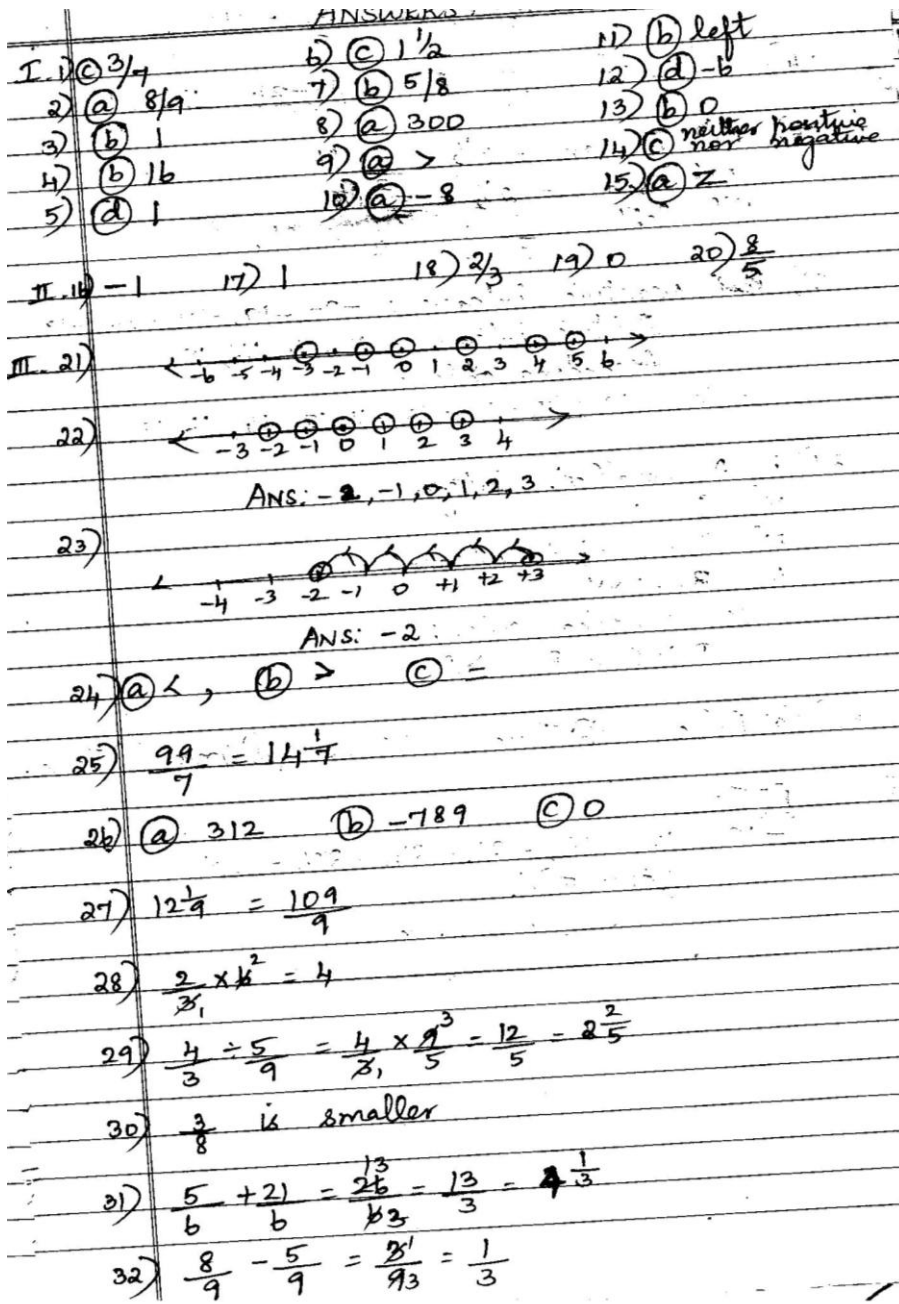 ANSWERS:
I. 1) ⓒ 3/7 6) ⓒ 1 1/2 11) ⓑ left
2) ⓐ 8/9 7) ⓑ 5/8 12) ⓓ -6
3) ⓑ 1 8) ⓐ 300 13) ⓑ 0
4) ⓑ 16 9) ⓐ > 14) ⓒ neither positive nor negative
5) ⓓ 1 10) ⓐ -8 15) ⓐ Z
II. 16) -1 17) 1 18) 2/3 19) 0 20) 8/5
III. 21) -6 -5 -4 -3 -2 -1 0 1 2 3 4 5 6
22) -3 -2 -1 0 1 2 3 4
ANS: -2, -1, 0, 1, 2, 3
23) -4 -3 -2 -1 0 +1 +2 +3
ANS: -2
24) ⓐ <, ⓑ > ⓒ =
25) 99/7 = 14 1/7
26) ⓐ 312 ⓑ -789 ⓒ 0
27) 12 1/9 = 109/9
28) 2/3 1 × 6 2 = 4
29) 4/3 ÷ 5/9 = 4/3 1 × 9 3/5 = 12/5 = 2 2/5
30) 3/8 is smaller
31) 5/6 + 21/6 = 26 13/6 3 = 13/3 = 4 1/3
32) 8/9 - 5/9 = 3 1/9 3 = 1/3